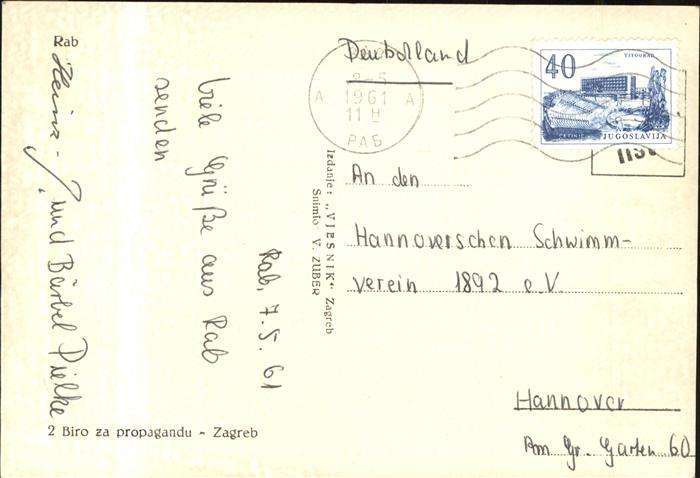 Rab
Rab, 7.5.61
Viele Grüße aus Rab
senden
Heinz-J. und Bärbel Pielke
2 Biro za propagandu - Zagreb
Izdanje: „VJESNIK“ Zagreb
Snimio V. ZUBER
8-5
A 1961 A
11 H
РАБ
40
TITOGRAD
JUGOSLAVIJA
Deutschland
An den
Hannoverschen Schwimm-
verein 1892 e.V.
Hannover
Am Gr. Garten 60